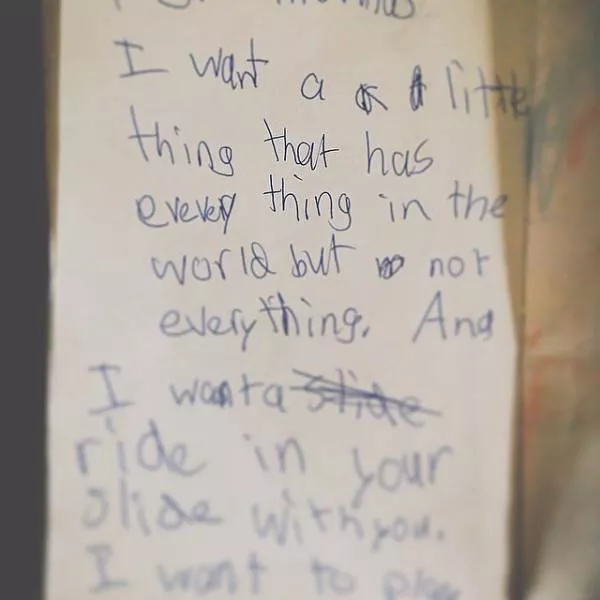 I want a little
thing that has
every thing in the
world but not
everything. And
I want a slide
ride in your
slide with you.
I want to play